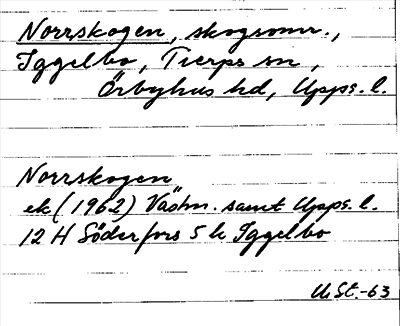 Norrskogen, skogsomr.,
Iggelbo, Tierps sn,
Örbyhus hd, Upps. l.
Norrskogen
ek (1962) Västm. samt Upps. l.
12 H Söderfors 5 h Iggelbo
U.St.-63